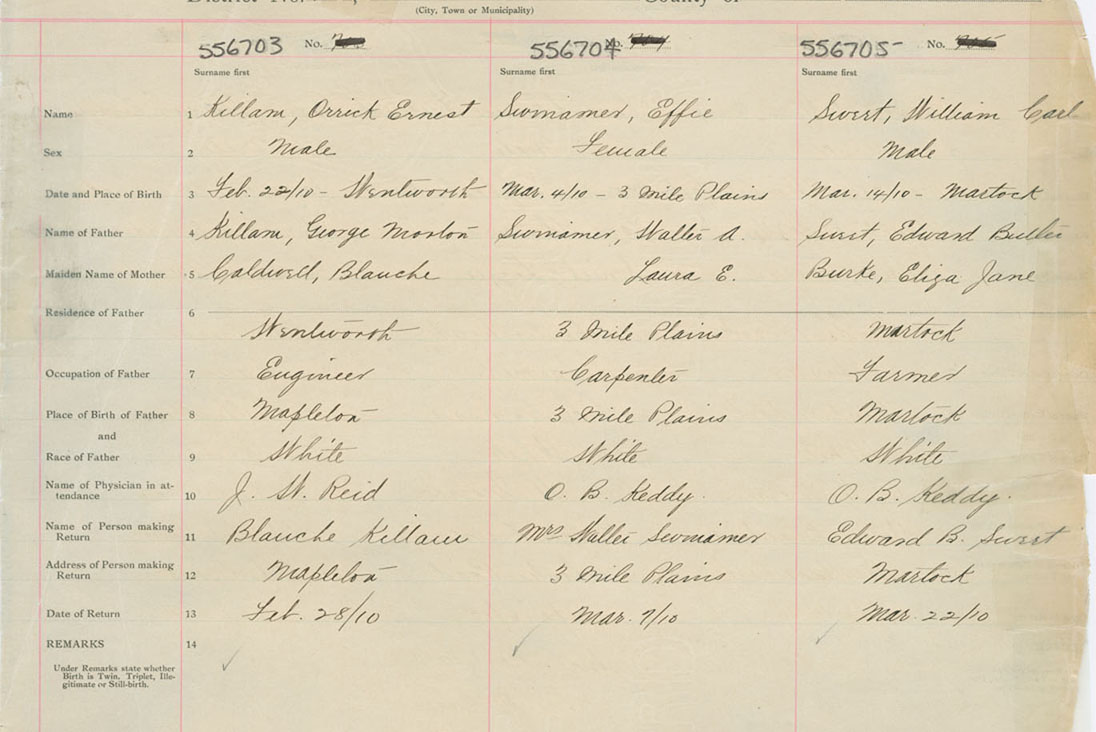 (City, Town or Municipality)
556703 No. 556704 No. 556705 No.
Surname first Surname first Surname first
Name 1 Killam, Orrick Ernest Swinamer, Effie Swert, William Carl
Sex 2 Male Female Male
Date and Place of Birth 3 Feb. 22/10 - Wentworth Mar. 4/10 - 3 Mile Plains Mar. 14/10 - Martock
Name of Father 4 Killam, George Morton Swinamer, Walter A. Swert, Edward Butler
Maiden Name of Mother 5 Caldwell, Blanche Laura E. Burke, Eliza Jane
Residence of Father 6
Wentworth 3 Mile Plains Martock
Occupation of Father 7 Engineer Carpenter Farmer
Place of Birth of Father 8 Mapleton 3 Mile Plains Martock
and
Race of Father 9 White White White
Name of Physician in at-
tendance 10 J. W. Reid O. B. Keddy. O. B. Keddy.
Name of Person making
Return 11 Blanche Killam Mrs Walter Swinamer Edward B. Swert
Address of Person making
Return 12 Mapleton 3 Mile Plains Martock
Date of Return 13 Feb. 28/10 Mar. 7/10 Mar. 22/10
REMARKS 14
Under Remarks state whether
Birth is Twin, Triplet, Ille-
gitimate or Still-birth.